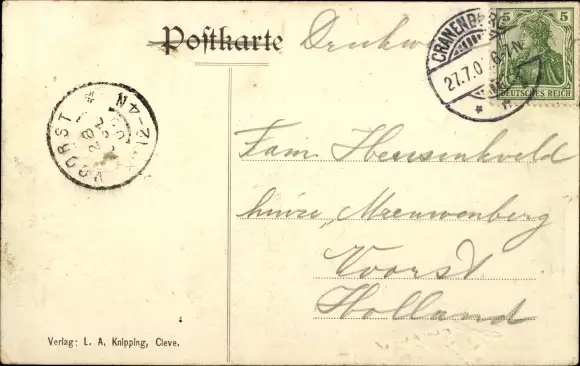 Postkarte
CRANENBERG
27.7.0
6-7N
5 5
DEUTSCHES REICH
VOORST
28
12-4N
Fam Heusinkveld
huize "Meeuwenberg"
Voorst
Holland
Verlag: L. A. Knipping, Cleve.